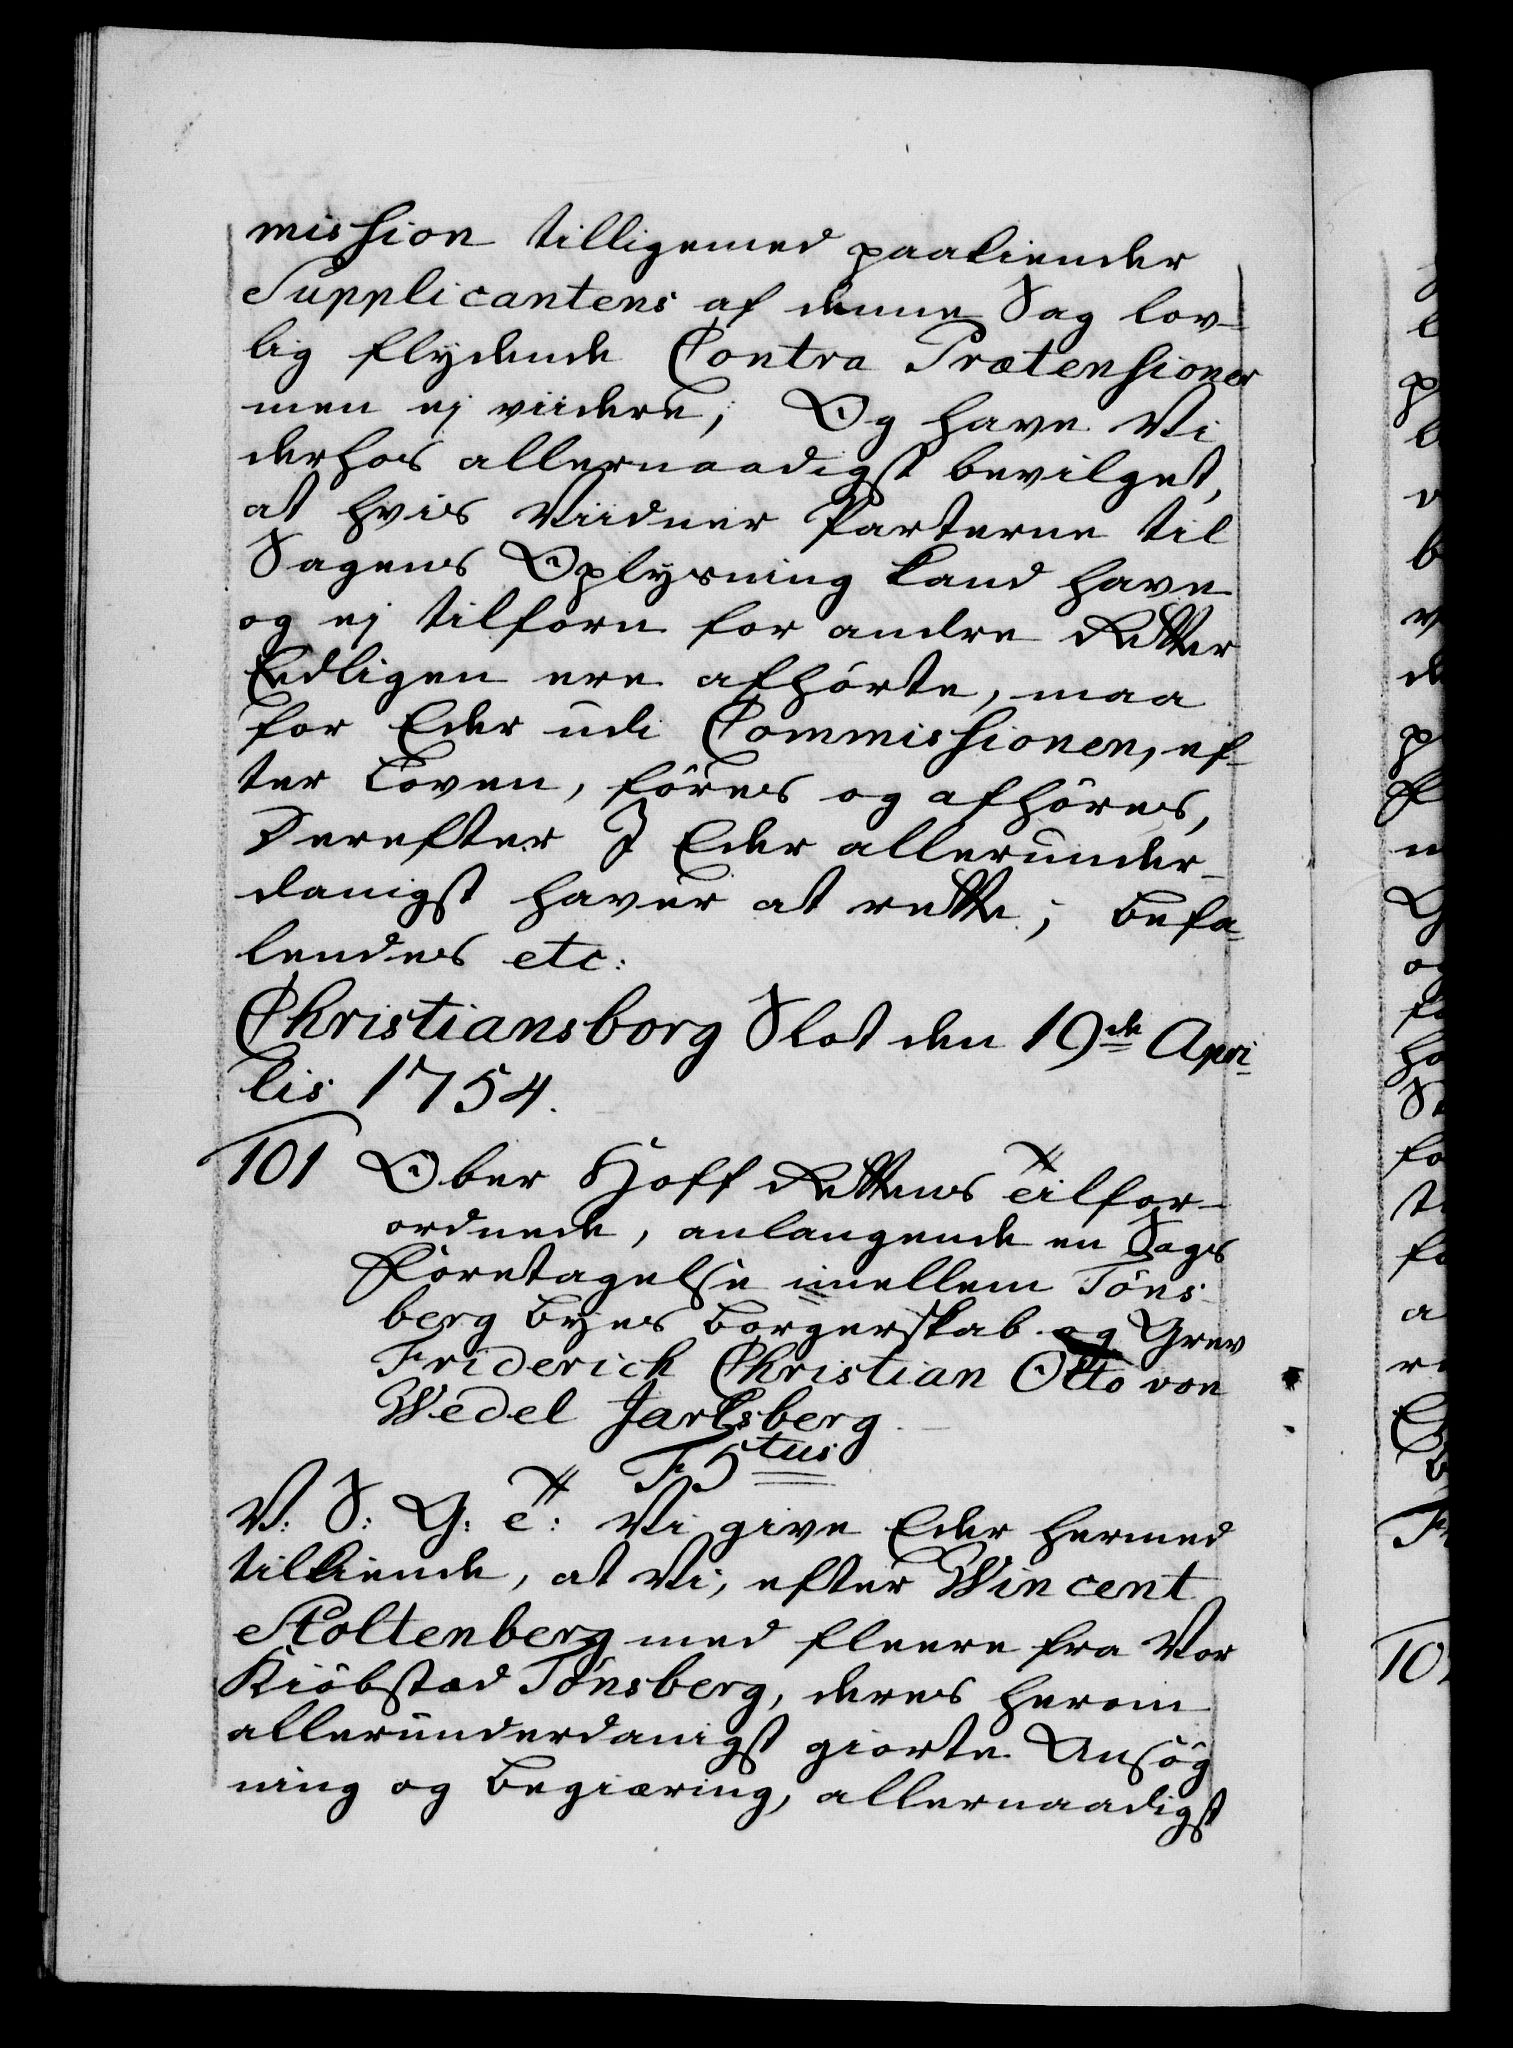 mission tilligemed paakiender
Supplicantens af denne Sag lov-
lig flydende Contra Prætensioner
men ej viidere; Og have Vi
derhos allernaadigst bevilget,
at hvis Viidner Parterne til
Sagens Oplysning kand have
og ej tilforn for andre Retter
Eedligen ere afhørte, maa
for Eder udi Commissionen, ef-
ter Loven, føres og afhøres,
Derefter I Eder allerunder-
danigst haver at rette; Befa-
lendes etc:
Christiansborg Slot den 19de Apri-
lis 1754.
101 Ober Hoff Rettens Tilfor-
ordnede, anlangende en Sags
Foretagelse imellem Töns-
berg Byes Borgerskab og Grev
Friderich Christian Otto von
Wedel Jarlsberg.
F 5tus
V: S: G: T: Vi give Eder hermed
tilkiende, at Vi, efter Wincent
Stoltenberg med fleere fra Vor
Kiøbstad Tönsberg, deres herom
allerunderdanigst giorte Ansøg
ning og Begiæring, allernaadigst